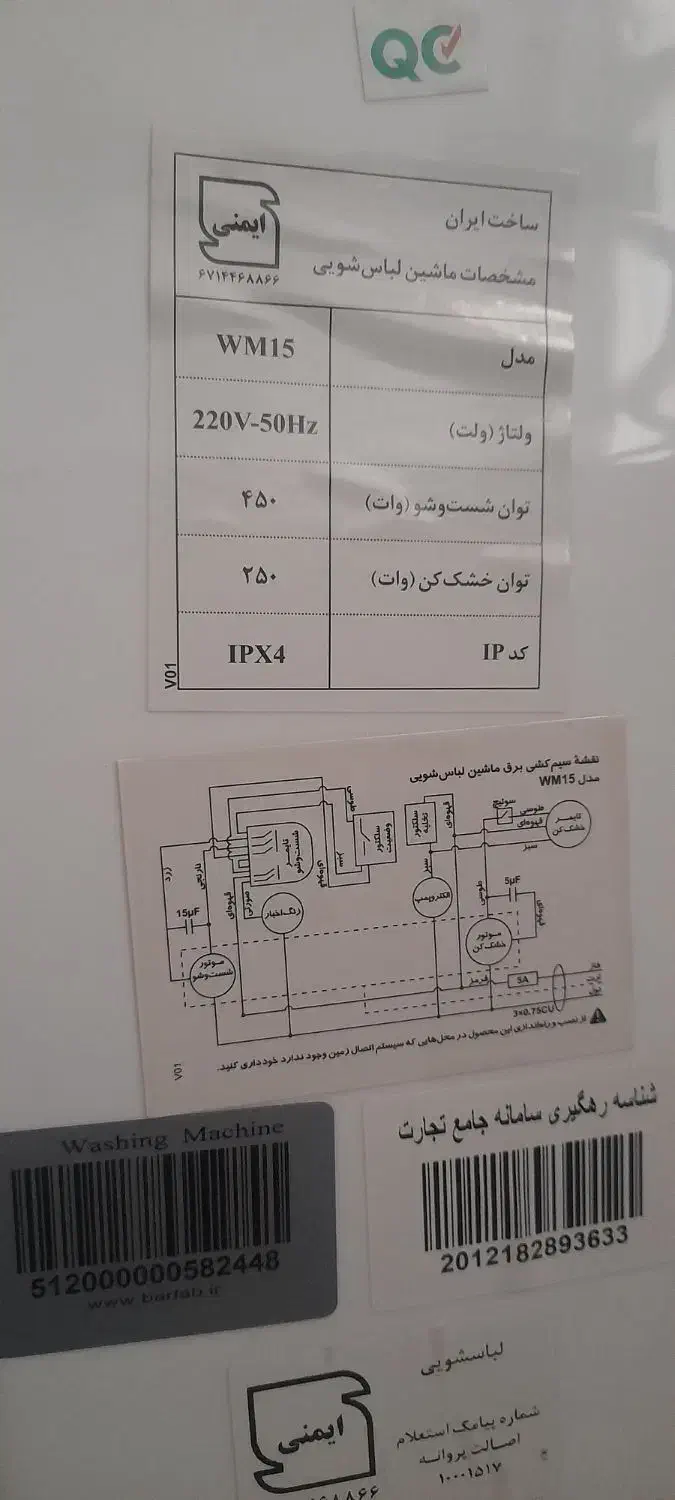 QC
ساخت ایران
مشخصات ماشین لباس‌شویی
ایمنی
۶۷۱۴۴۶۸۸۶۶
مدل WM15
ولتاژ (ولت) 220V-50Hz
توان شست‌وشو (وات) ۴۵۰
توان خشک‌کن (وات) ۲۵۰
کد IP IPX4
V01
نقشهٔ سیم‌کشی برق ماشین لباس‌شویی
مدل WM15
تایمر خشک‌کن
سوئیچ
طوسی
قهوه‌ای
سبز
سلکتور تخلیه
قهوه‌ای
سبز
سلکتور وضعیت
طوسی
سبز
قهوه‌ای
تایمر شست‌وشو
زرد
نارنجی
قهوه‌ای
صورتی
زنگ اخبار
الکتروپمپ
طوسی
5µF
قهوه‌ای
موتور خشک‌کن
15µF
موتور شست‌وشو
قرمز
5A
فاز
نول
3×0.75CU
از نصب و راه‌اندازی این محصول در محل‌هایی که سیستم اتصال زمین وجود ندارد خودداری کنید.
V01
Washing Machine
512000000582448
www.barfab.ir
شناسه رهگیری سامانه جامع تجارت
2012182893633
لباسشویی
ایمنی
شماره پیامک استعلام
اصالت پروانه
۱۰۰۰۱۵۱۷